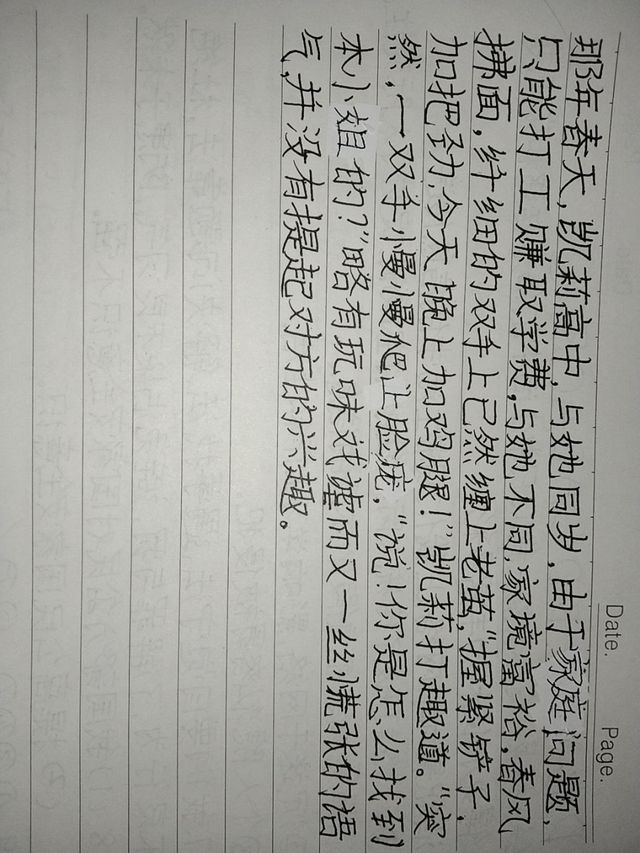 Date.
Page.
那年春天,凯莉高中,与她同岁,由于家庭问题,
只能打工赚取学费,与她不同,家境富裕,春风
拂面,纤细的双手上已然缠上老茧,“握紧铲子,
加把劲,今天晚上加鸡腿!”凯莉打趣道。“突
然,一双手慢慢爬上脸庞,“说!你是怎么找到
本小姐的?”略有玩味戏谑而又一丝慌张的语
气,并没有提起对方的兴趣。